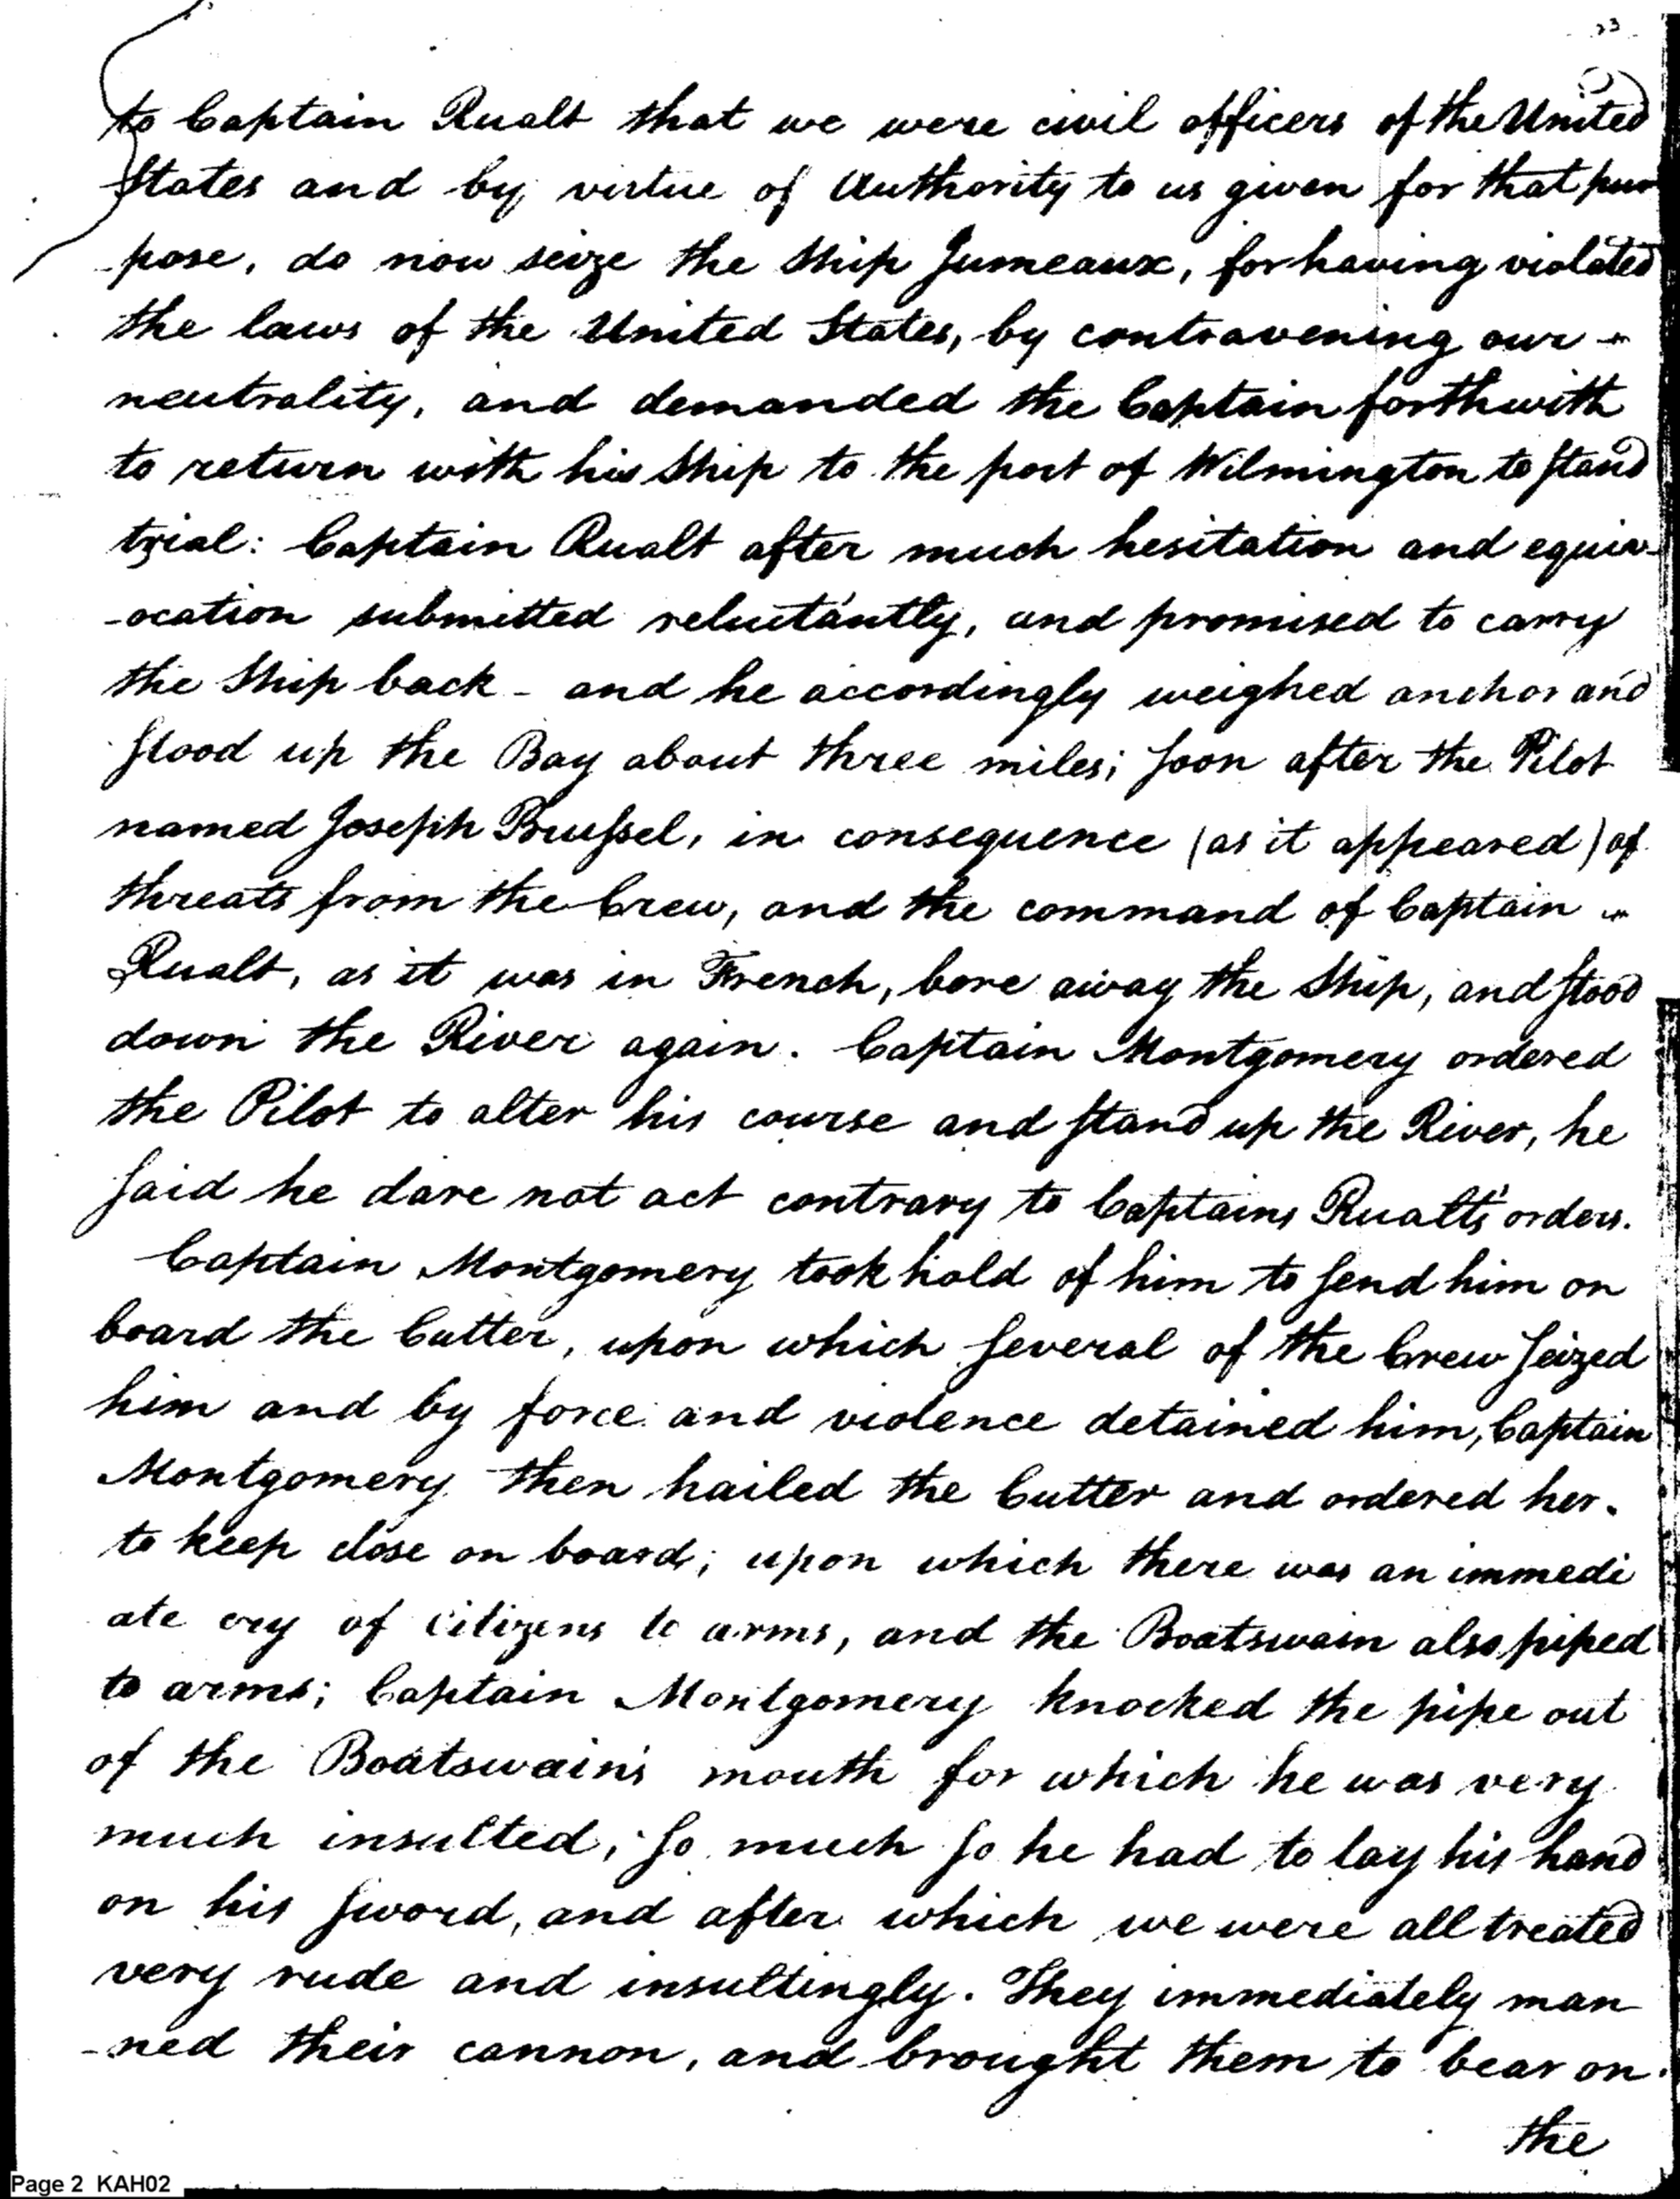 23
to Captain Rualt that we were civil officers of the United
States and by virtue of Authority to us given for that pur
-pose, do now seize the Ship Jumeaux, for having violated
the laws of the United States, by contravening our
neutrality, and demanded the Captain forthwith
to return with his Ship to the port of Wilmington to stand
trial: Captain Rualt after much hesitation and equiv-
-ocation submitted reluctantly, and promised to carry
the Ship back - and he accordingly weighed anchor and
stood up the Bay about three miles; soon after the Pilot
named Joseph Brussel, in consequence (as it appeared) of
threats from the Crew, and the command of Captain
Rualt, as it was in French, bore away the Ship, and stood
down the River again. Captain Montgomery ordered
the Pilot to alter his course and stand up the River, he
said he dare not act contrary to Captains Rualt's orders.
Captain Montgomery took hold of him to send him on
board the Cutter, upon which several of the Crew seized
him and by force and violence detained him, Captain
Montgomery then hailed the Cutter and ordered her
to keep close on board; upon which there was an immedi
ate cry of citizens to arms, and the Boatswain also piped
to arms; Captain Montgomery knocked the pipe out
of the Boatswain's mouth for which he was very
much insulted, so much so he had to lay his hand
on his sword, and after which we were all treated
very rude and insultingly. They immediately man
-ned their cannon, and brought them to bear on
the
Page 2 KAH02